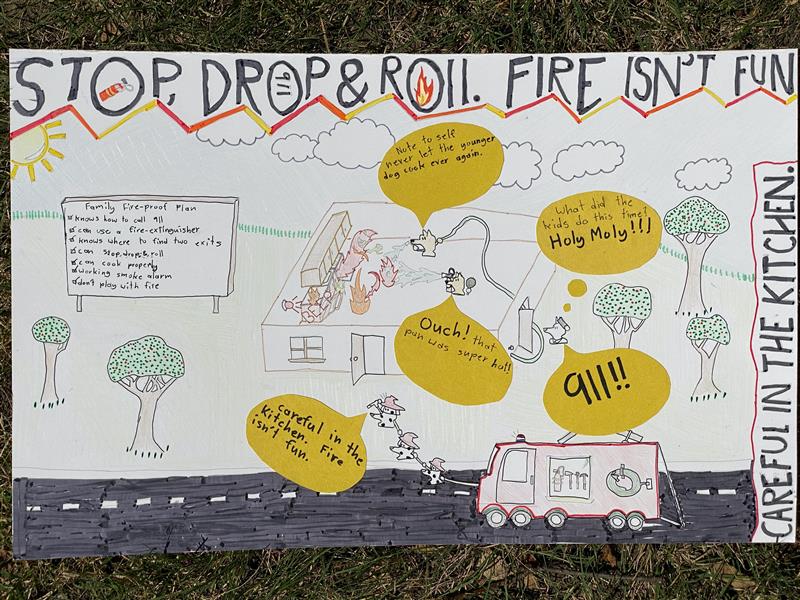 STOP, DROP & ROll. FIRE ISN'T FUN
911
Note to self
never let the younger
dog cook ever again.
What did the
kids do this time?
Holy Moly!!!
Family Fire-proof Plan
knows how to call 911
can use a fire-extinguisher
knows where to find two exits
can stop, drop, & roll
can cook properly
working smoke alarm
don't play with fire
Ouch! that
pan was super hot!
911!!
careful in the
kitchen. Fire
isn't fun.
CAREFUL IN THE KITCHEN.